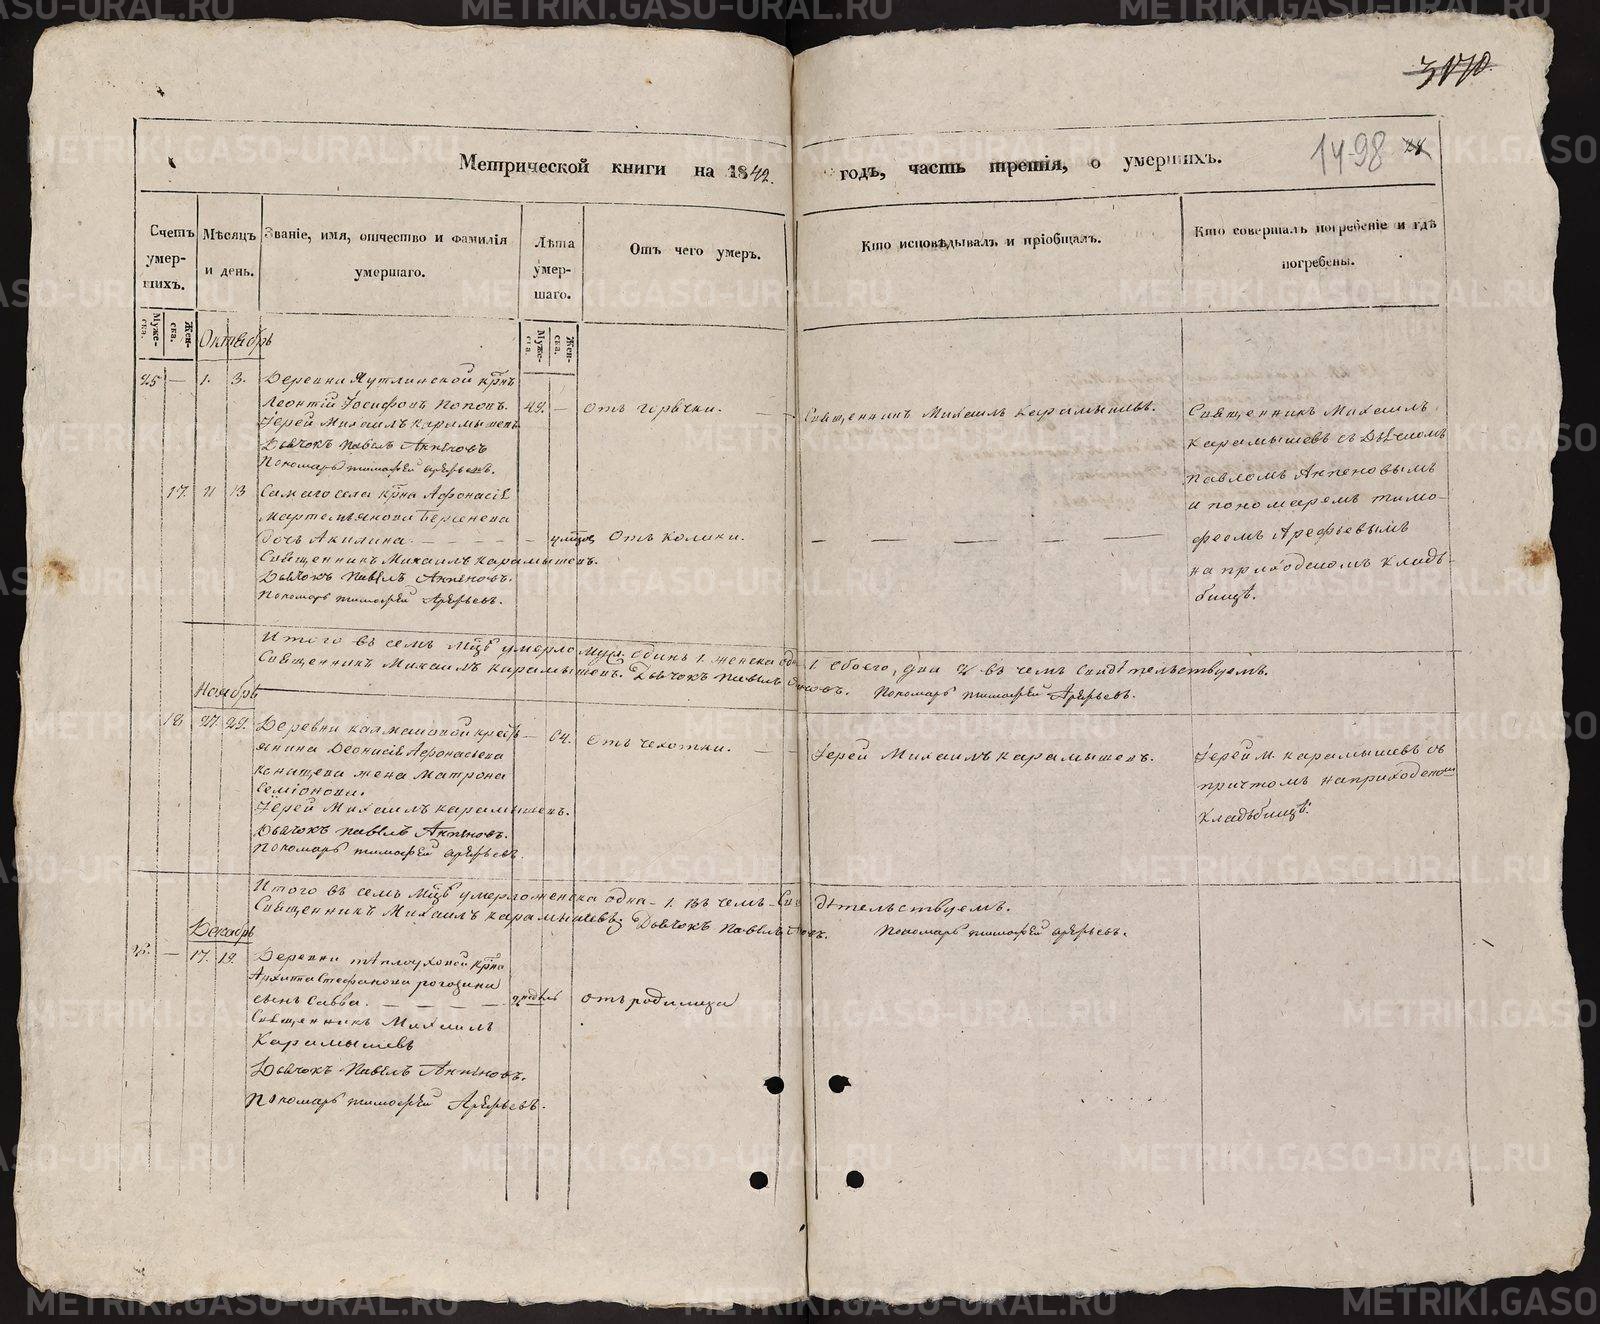 3170.
1498
Метрической книги на 1842. годъ, часть третія, о умершихъ.
Счетъ умер-шихъ.
Мѣсяцъ и день.
Званіе, имя, отчество и фамилія умершаго.
Лѣта умер-шаго.
Отъ чего умеръ.
Кто исповѣдывалъ и пріобщалъ.
Кто совершалъ погребеніе и гдѣ погребены.
Муже-ска.
Жен-ска.
Муже-ска.
Жен-ска.
Октябрь
25 — 1. 3. Деревни Яутлинской крнъ
Леонтій Іосифовъ Поповъ. 49. — Отъ горячки. — — Священникъ Михаилъ Карамышевъ.
Іерей Михаилъ Карамышевъ
Дьячокъ Павелъ Акпеновъ
Пономарь Тимофей Арефьевъ.
Священникъ Михаилъ
Карамышевъ съ Дьячкомъ
Павломъ Акпеновымъ
и пономаремъ Тимо-
феемъ Арефьевымъ
на приходскомъ кладь-
бищѣ.
17. 11 13 Самаго села крна Афонасія
Мартемьянова Берсенева
Дочь Акилина. — — — Отъ колики. — — — —
Священникъ Михаилъ Карамышевъ.
Дьячокъ Павелъ Акпеновъ.
Пономарь Тимофей Арефьевъ.
Итого въ семъ мцѣ умерло муж. одинъ 1. женска од. 1. обоего, два 2/ въ чемъ свидѣтельствуемъ.
Священникъ Михаилъ Карамышевъ. Дьячокъ Павелъ Пономарь Тимофей Арефьевъ.
Ноябрь
18 27 29. Деревни Калмаковой кресть — 64. Отъ чехотки. — — Іерей Михаилъ Карамышевъ.
янина Деонасія Афонасьева
жена Матрона
Семіонова.
Іерей Михаилъ Карамышевъ.
Дьячокъ Павелъ Акпеновъ.
Пономарь Тимофей Арефьевъ.
Іерей М. Карамышевъ съ
причтомъ на приходском
кладьбищѣ.
Итого въ семъ мцѣ умерло женска одна — 1. въ чемъ — свидѣтельствуемъ.
Священникъ Михаилъ Карамышевъ; Дьячокъ Павелъ Пономарь Тимофей Арефьевъ.
Декабрь
26. — 17. 19. Деревни Тѣплоуховой крна
Архипа Стефанова Рогозина
сынъ Савва. — — — Отъ родимца
Священникъ Михаилъ
Карамышевъ
Дьячокъ Павелъ Акпеновъ.
Пономарь Тимофей Арефьевъ.
METRIKI.GASO-URAL.RU